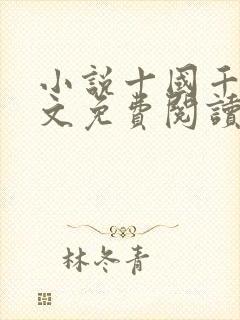 小说十國千
文免費閱讀
林冬青